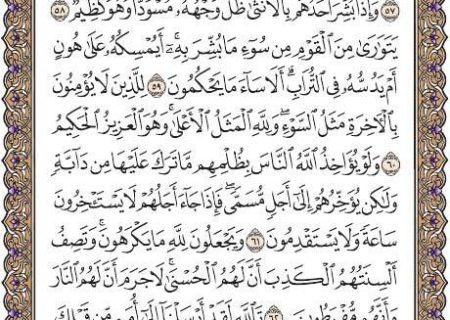 ۝٥٧ وَإِذَا بُشِّرَ أَحَدُهُم بِٱلْأُنثَىٰ ظَلَّ وَجْهُهُۥ مُسْوَدًّا وَهُوَ كَظِيمٌ ۝٥٨
يَتَوَٰرَىٰ مِنَ ٱلْقَوْمِ مِن سُوٓءِ مَا بُشِّرَ بِهِۦٓ ۚ أَيُمْسِكُهُۥ عَلَىٰ هُونٍ
أَمْ يَدُسُّهُۥ فِى ٱلتُّرَابِ ۗ أَلَا سَآءَ مَا يَحْكُمُونَ ۝٥٩ لِلَّذِينَ لَا يُؤْمِنُونَ
بِٱلْـَٔاخِرَةِ مَثَلُ ٱلسَّوْءِ ۖ وَلِلَّهِ ٱلْمَثَلُ ٱلْأَعْلَىٰ ۚ وَهُوَ ٱلْعَزِيزُ ٱلْحَكِيمُ
۝٦٠ وَلَوْ يُؤَاخِذُ ٱللَّهُ ٱلنَّاسَ بِظُلْمِهِم مَّا تَرَكَ عَلَيْهَا مِن دَآبَّةٍ
وَلَٰكِن يُؤَخِّرُهُمْ إِلَىٰٓ أَجَلٍ مُّسَمًّى ۖ فَإِذَا جَآءَ أَجَلُهُمْ لَا يَسْتَـْٔخِرُونَ
سَاعَةً وَلَا يَسْتَقْدِمُونَ ۝٦١ وَيَجْعَلُونَ لِلَّهِ مَا يَكْرَهُونَ ۚ وَتَصِفُ
أَلْسِنَتُهُمُ ٱلْكَذِبَ أَنَّ لَهُمُ ٱلْحُسْنَىٰ ۖ لَا جَرَمَ أَنَّ لَهُمُ ٱلنَّارَ
وَأَنَّهُم مُّفْرَطُونَ ۝٦٢ تَٱللَّهِ لَقَدْ أَرْسَلْنَآ إِلَىٰٓ أُمَمٍ مِّن قَبْلِكَ